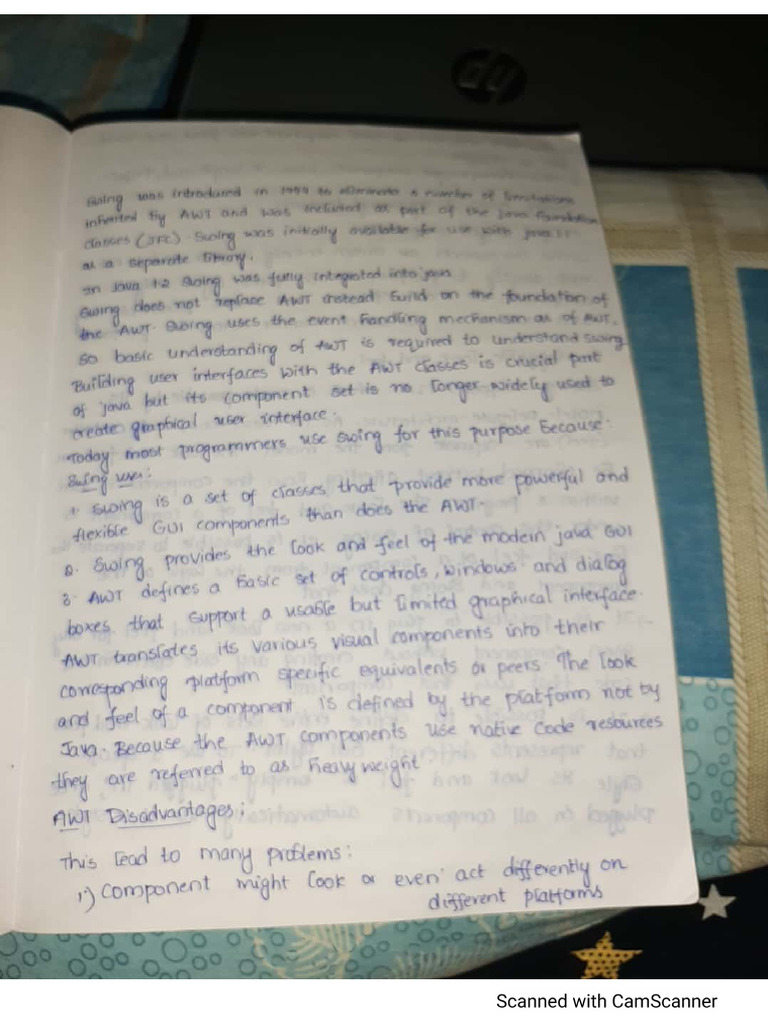 hp
Swing was introduced in 1997 to eliminate a number of limitations
inherited by AWT and was included as part of the java foundation
classes (JFC). Swing was initially available for use with java 1.1
as a separate library.
In Java 1.2 Swing was fully integrated into java
Swing does not replace AWT instead build on the foundation of
the AWT. Swing uses the event handling mechanism as of AWT.
so basic understanding of AWT is required to understand swing
Building user interfaces with the AWT classes is crucial part
of java but its component set is no longer widely used to
create graphical user interface.
Today most programmers use swing for this purpose because:
Swing
1. Swing is a set of classes that provide more powerful and
flexible GUI components than does the AWT.
2. Swing provides the look and feel of the modern java GUI
3. AWT defines a basic set of controls, windows and dialog
boxes that support a usable but limited graphical interface.
AWT translates its various visual components into their
corresponding platform specific equivalents or peers. The look
and feel of a component is defined by the platform not by
Java. Because the AWT components use native code resources
they are referred to as heavy weight
AWT Disadvantages:
This lead to many problems:
1) Component might look or even act differently on
different platforms
Scanned with CamScanner